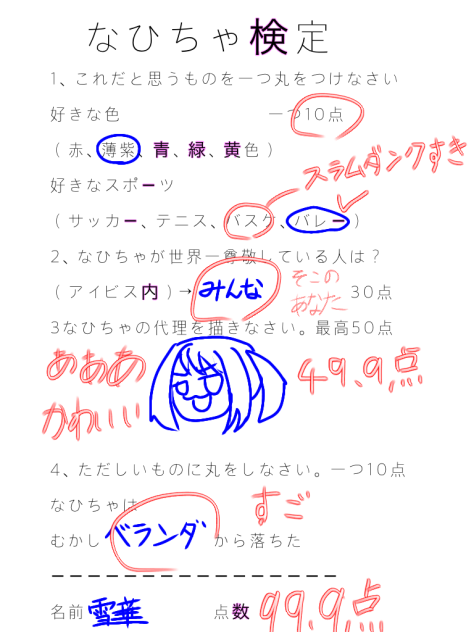 なひちゃ検定
1、これだと思うものを一つ丸をつけなさい
好きな色 一つ10点
(赤、薄紫、青、緑、黄色)
スラムダンクすき
好きなスポーツ
(サッカー、テニス、バスケ、バレー)
2、なひちゃが世界一尊敬している人は?
(アイビス内)→みんな 30点
そこの
あなた
3なひちゃの代理を描きなさい。最高50点
あああ
かわいい
49.9点
4、ただしいものに丸をしなさい。一つ10点
なひちゃは
すご
むかしベランダから落ちた
名前 雪華 点数 99.9点